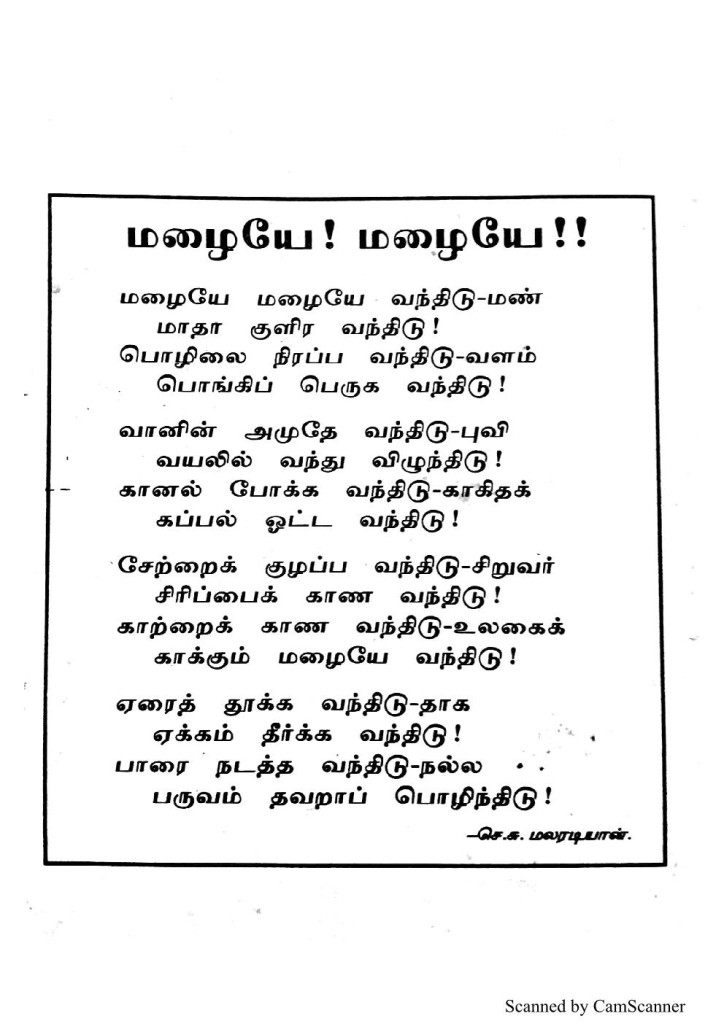 மழையே! மழையே!!
மழையே மழையே வந்திடு-மண்
மாதா குளிர வந்திடு!
பொழிலை நிரப்ப வந்திடு-வளம்
பொங்கிப் பெருக வந்திடு!
வானின் அமுதே வந்திடு-புவி
வயலில் வந்து விழுந்திடு!
கானல் போக்க வந்திடு-காகிதக்
கப்பல் ஓட்ட வந்திடு!
சேற்றைக் குழப்ப வந்திடு-சிறுவர்
சிரிப்பைக் காண வந்திடு!
காற்றைக் காண வந்திடு-உலகைக்
காக்கும் மழையே வந்திடு!
ஏரைத் தூக்க வந்திடு-தாக
ஏக்கம் தீர்க்க வந்திடு!
பாரை நடத்த வந்திடு-நல்ல
பருவம் தவறாப் பொழிந்திடு!
–செ.சு. மலரடியான்.
Scanned by CamScanner